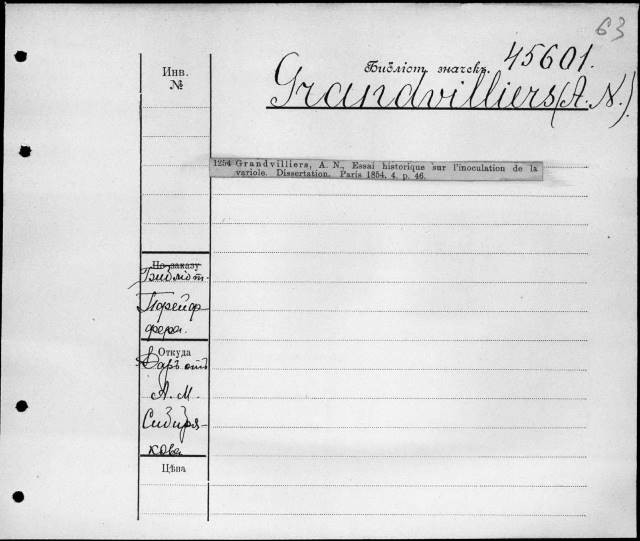 63
Библіот. значекъ. 45601.
Grandvilliers (A. N.).
Инв.
№
1254 Grandvilliers, A. N., Essai historique sur l'inoculation de la
variole. Dissertation. Paris 1854. 4. p. 46.
По заказу
Библіот.
Пфейф-
фера.
Откуда
Даръ отъ
А. М.
Сибиря-
кова
Цѣна